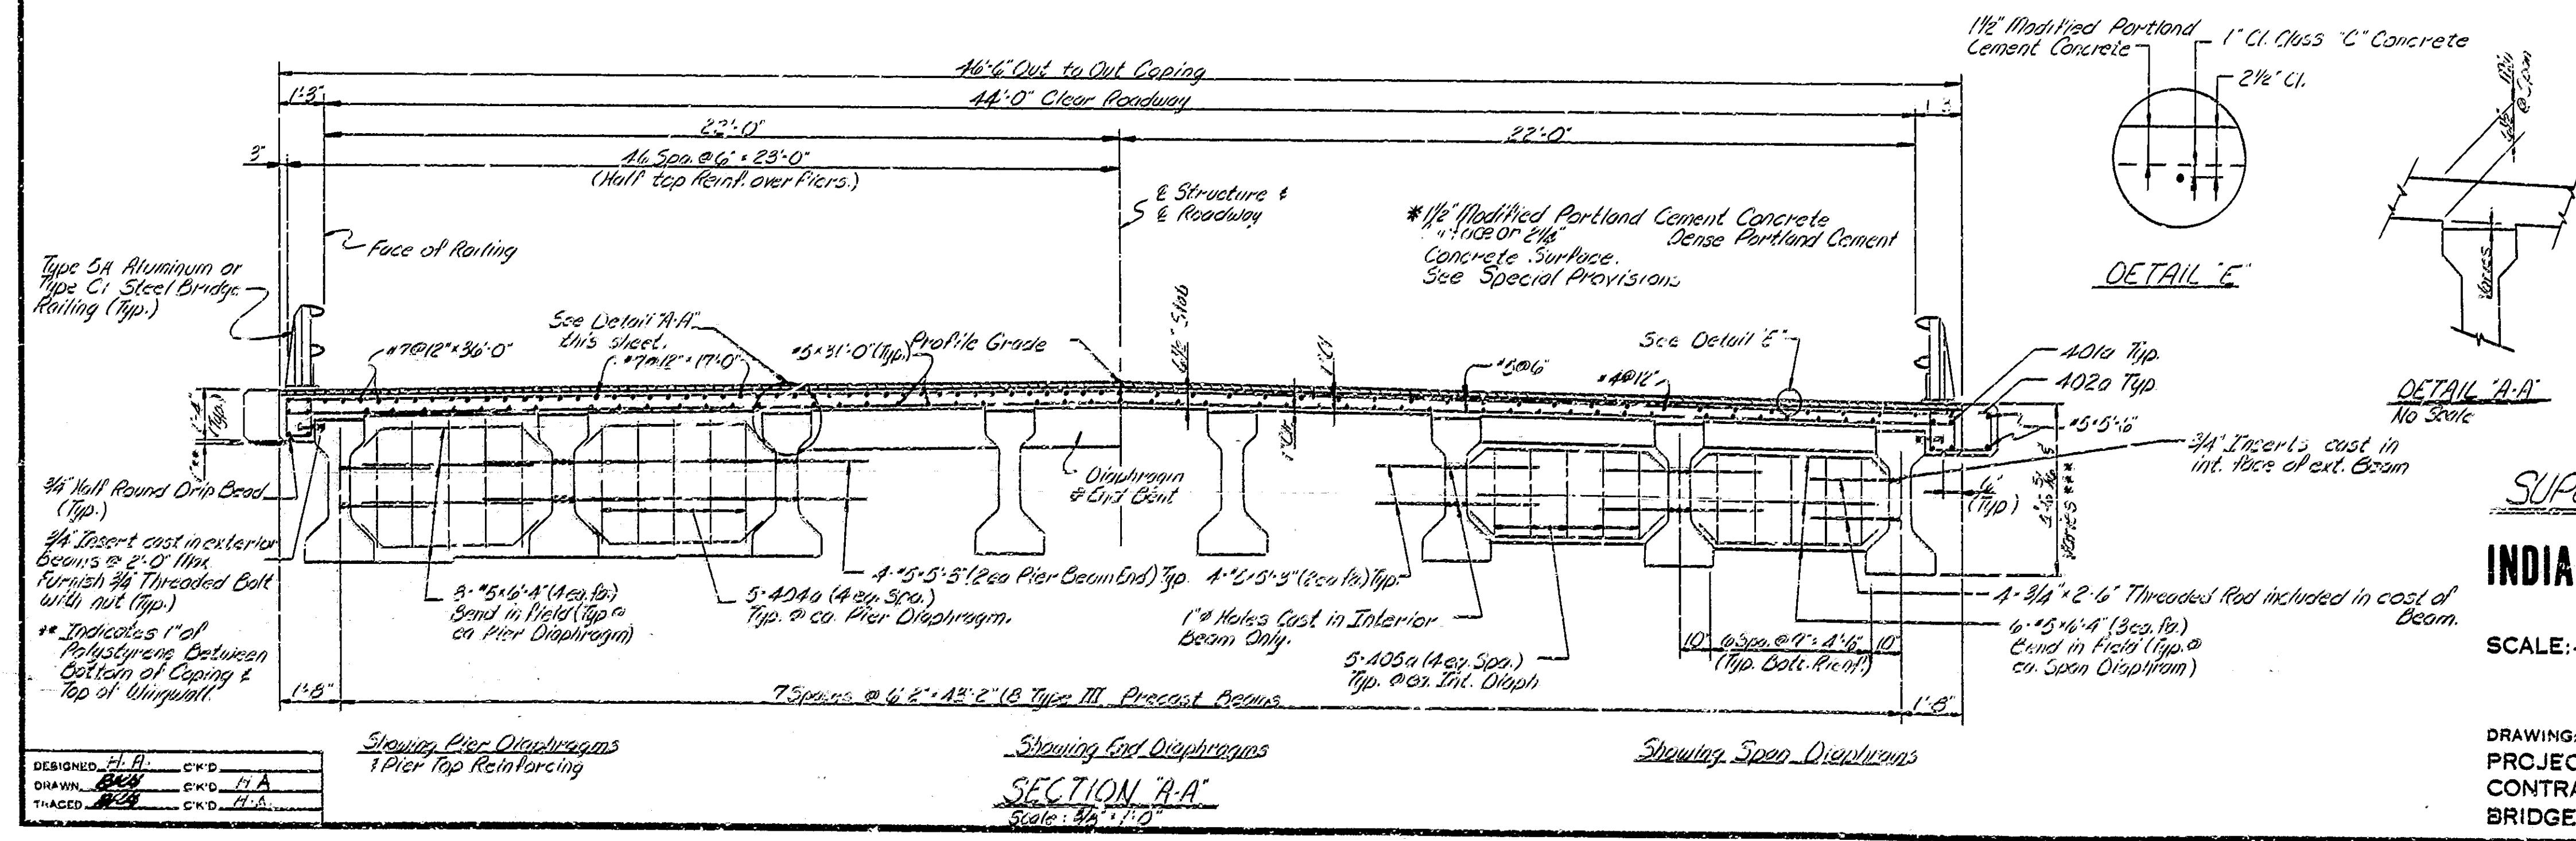 46'-6" Out to Out Coping
1'-3"
44'-0" Clear Roadway
1'-3
22'-0"
22'-0"
3"
46 Spa. @ 6" = 23'-0"
(Half top Reinf. over Piers.)
℄ Structure &
℄ Roadway
Face of Railing
Type 5A Aluminum or
Type C1 Steel Bridge
Railing (Typ.)
* 1½" Modified Portland Cement Concrete
Dense Portland Cement
Concrete Surface.
See Special Provisions
1½" Modified Portland
Cement Concrete
1" Cl. Class "C" Concrete
2½" Cl.
DETAIL "E"
Varies
DETAIL "A-A"
No Scale
#7@12"×36'-0"
See Detail "A-A"
this sheet.
#7@12"×17'-0"
#5×31'-0" (Typ.)
Profile Grade
6½" Slab
1" Cl.
See Detail "E"
#5@6"
#4@12"
401a Typ.
402a Typ
#5×5'-6"
1'-4"
(Typ.)
3/4" Inserts cast in
int. face of ext. Beam
6"
(Typ)
Varies ***
Diaphragm
@ End Bent
3/4" Half Round Drip Bead
(Typ.)
3/4" Insert cast in exterior
Beams @ 2'-0" Max.
Furnish 3/4" Threaded Bolt
with nut (Typ.)
** Indicates 1" of
Polystyrene Between
Bottom of Coping &
Top of Wingwall.
8-#5×6'-4" (4 ea. fa.)
Bend in field (Typ @
ea Pier Diaphragm)
5-404a (4 eq. Spa.)
Typ. @ ea. Pier Diaphragm.
4-#5×5'-5" (2 ea Pier Beam End) Typ.
4-#6×5'-3" (2 ea fa.) Typ.
1"⌀ Holes Cast in Interior
Beam Only.
5-405a (4 eq. Spa.)
Typ. @ ea. Int. Diaph
10"
6 Spa. @ 9" = 4'-6"
10"
(Typ. Bott. Reinf.)
4-3/4"×2'-6" Threaded Rod included in cost of
Beam.
6-#5×6'-4" (3 ea. fa.)
Bend in Field (Typ. @
ea. Span Diaphram)
1'-8"
7 Spaces @ 6'-2" = 43'-2" (8 Type III Precast Beams
1'-8"
Showing Pier Diaphragms
& Pier Top Reinforcing
Showing End Diaphragms
Showing Span Diaphrams
SECTION "A-A"
Scale: 3/8" = 1'-0"
DESIGNED H.A. C'K'D
DRAWN C'K'D H A
TRACED C'K'D H.A.
SUP
INDIA
SCALE:
DRAWING
PROJEC
CONTRA
BRIDGE